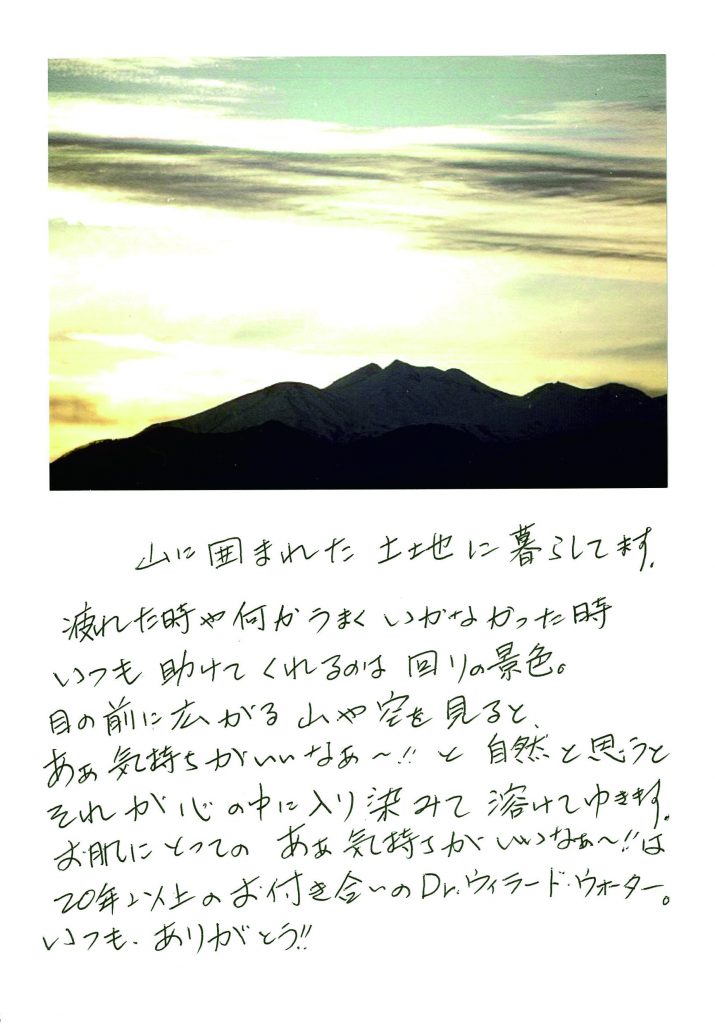 山に囲まれた土地に暮らしてます。
疲れた時や何かうまくいかなかった時
いつも助けてくれるのは回りの景色。
目の前に広がる山や空を見ると、
あぁ気持ちがいいなぁ〜!!と自然と思うと
それが心の中に入り染みて溶けてゆきます。
お肌にとってのあぁ気持ちがいいなぁ〜!!は
20年以上のお付き合いのDr.ウィラード・ウォーター。
いつも、ありがとう!!